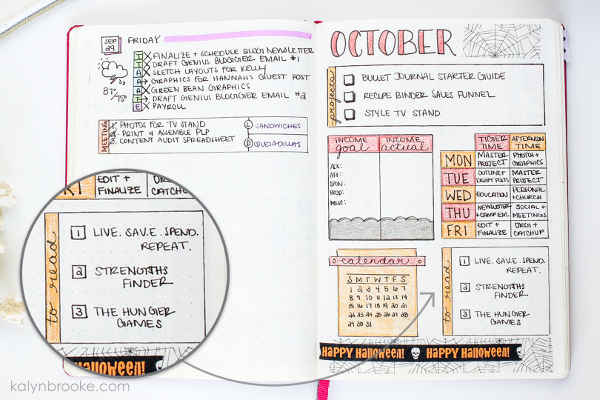 SEP
29
FRIDAY
FINALIZE + SCHEDULE BLOG NEWSLETTER
DRAFT GENIUS BLOGGER EMAIL #1
SKETCH LAYOUTS FOR KELLY
GRAPHICS FOR HANNAH'S GUEST POST
GREEN BEAN GRAPHICS
DRAFT GENIUS BLOGGER EMAIL #2
PAYROLL
MEETING
1. PHOTOS FOR TV STAND
2. PRINT & ASSEMBLE PLP
3. CONTENT AUDIT SPREADSHEET
L SANDWICHES
D QUESADILLAS
OCTOBER
projects
BULLET JOURNAL STARTER GUIDE
RECIPE BINDER SALES FUNNEL
STYLE TV STAND
INCOME goal
INCOME actual
ADS:
AFF:
SPON:
PROD:
MISC:
TIGER TIME
AFTERNOON TIME
MON MASTER PROJECT PHOTOS + GRAPHICS
TUE DRAFT POSTS MASTER PROJECT
WED EDUCATION PERSONAL + CHURCH
THU NEWSLETTER SOCIAL + MEETINGS
FRI EDIT + FINALIZE ORG + CATCHUP
calendar
S M T W T F S
1 2 3 4 5 6 7
8 9 10 11 12 13 14
15 16 17 18 19 20 21
22 23 24 25 26 27 28
29 30 31
to read
1 LIVE. SAVE. SPEND.
REPEAT.
2 STRENGTHS
FINDER
3 THE HUNGER
GAMES
HAPPY HALLOWEEN! HAPPY HALLOWEEN!
EDIT +
FINALIZE
CATCHUP
to read
1 LIVE. SAVE. SPEND.
REPEAT.
2 STRENGTHS
FINDER
3 THE HUNGER
GAMES
kalynbrooke.com